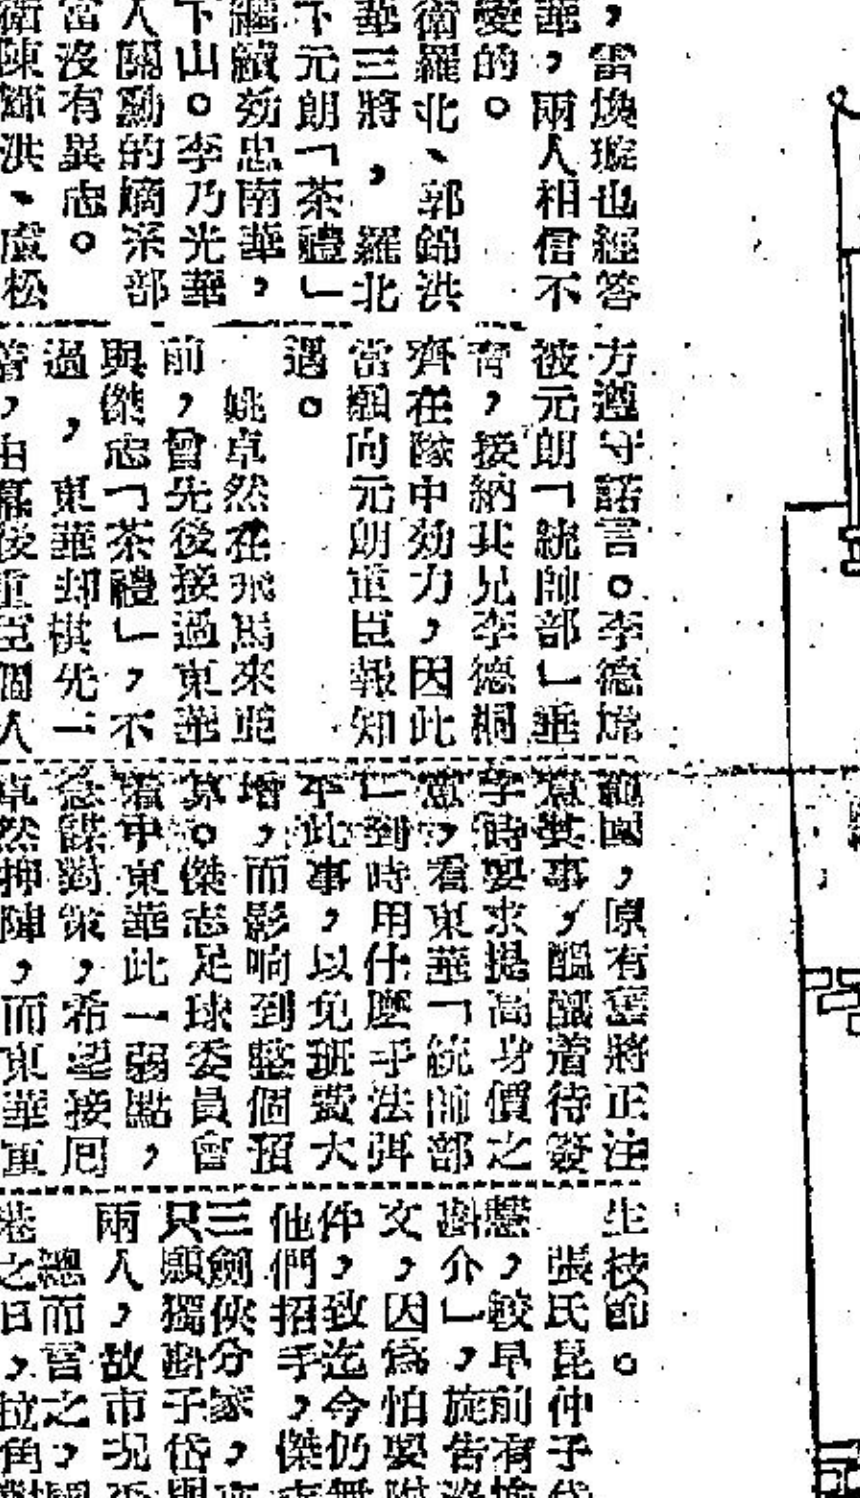 ，雷煥璇也經答
華，兩人相信不
變的。
衛羅北、郭錦洪
華三將，羅北
下元朗「茶禮」
繼續効忠南華，
下山。李乃光華
人關勳的嫡系部
當沒有異志。
衛陳輝洪、盧松
方遵守諾言。李德
被元朗「統帥部」垂
青，接納其兄李德桐
齊在隊中効力，因此
當願向元朗重臣報知
遇。
姚卓然在飛馬來亞
前，曾先後接過東華
與傑志「茶禮」，不
過，東華却棋先一
着，由幕後重臣個人
範圍，原有舊將正注
意其事，醞釀着待簽
字時要求提高身價之
意，看東華「統帥部
」到時用什麼手法弭
平此事，以免班費大
增，而影响到整個預
算。傑志足球委員會
看中東華此一弱點，
急謀對策，希望接囘
卓然押陣，而東華重
生枝節。
張氏昆仲子
，較早前有
介」，旋告
文，因爲怕要
仲，致迄今仍無
他們招手，傑
三劍俠分家，
只願獨子岱
兩人，故市况
總而言之，
港之日，拉角